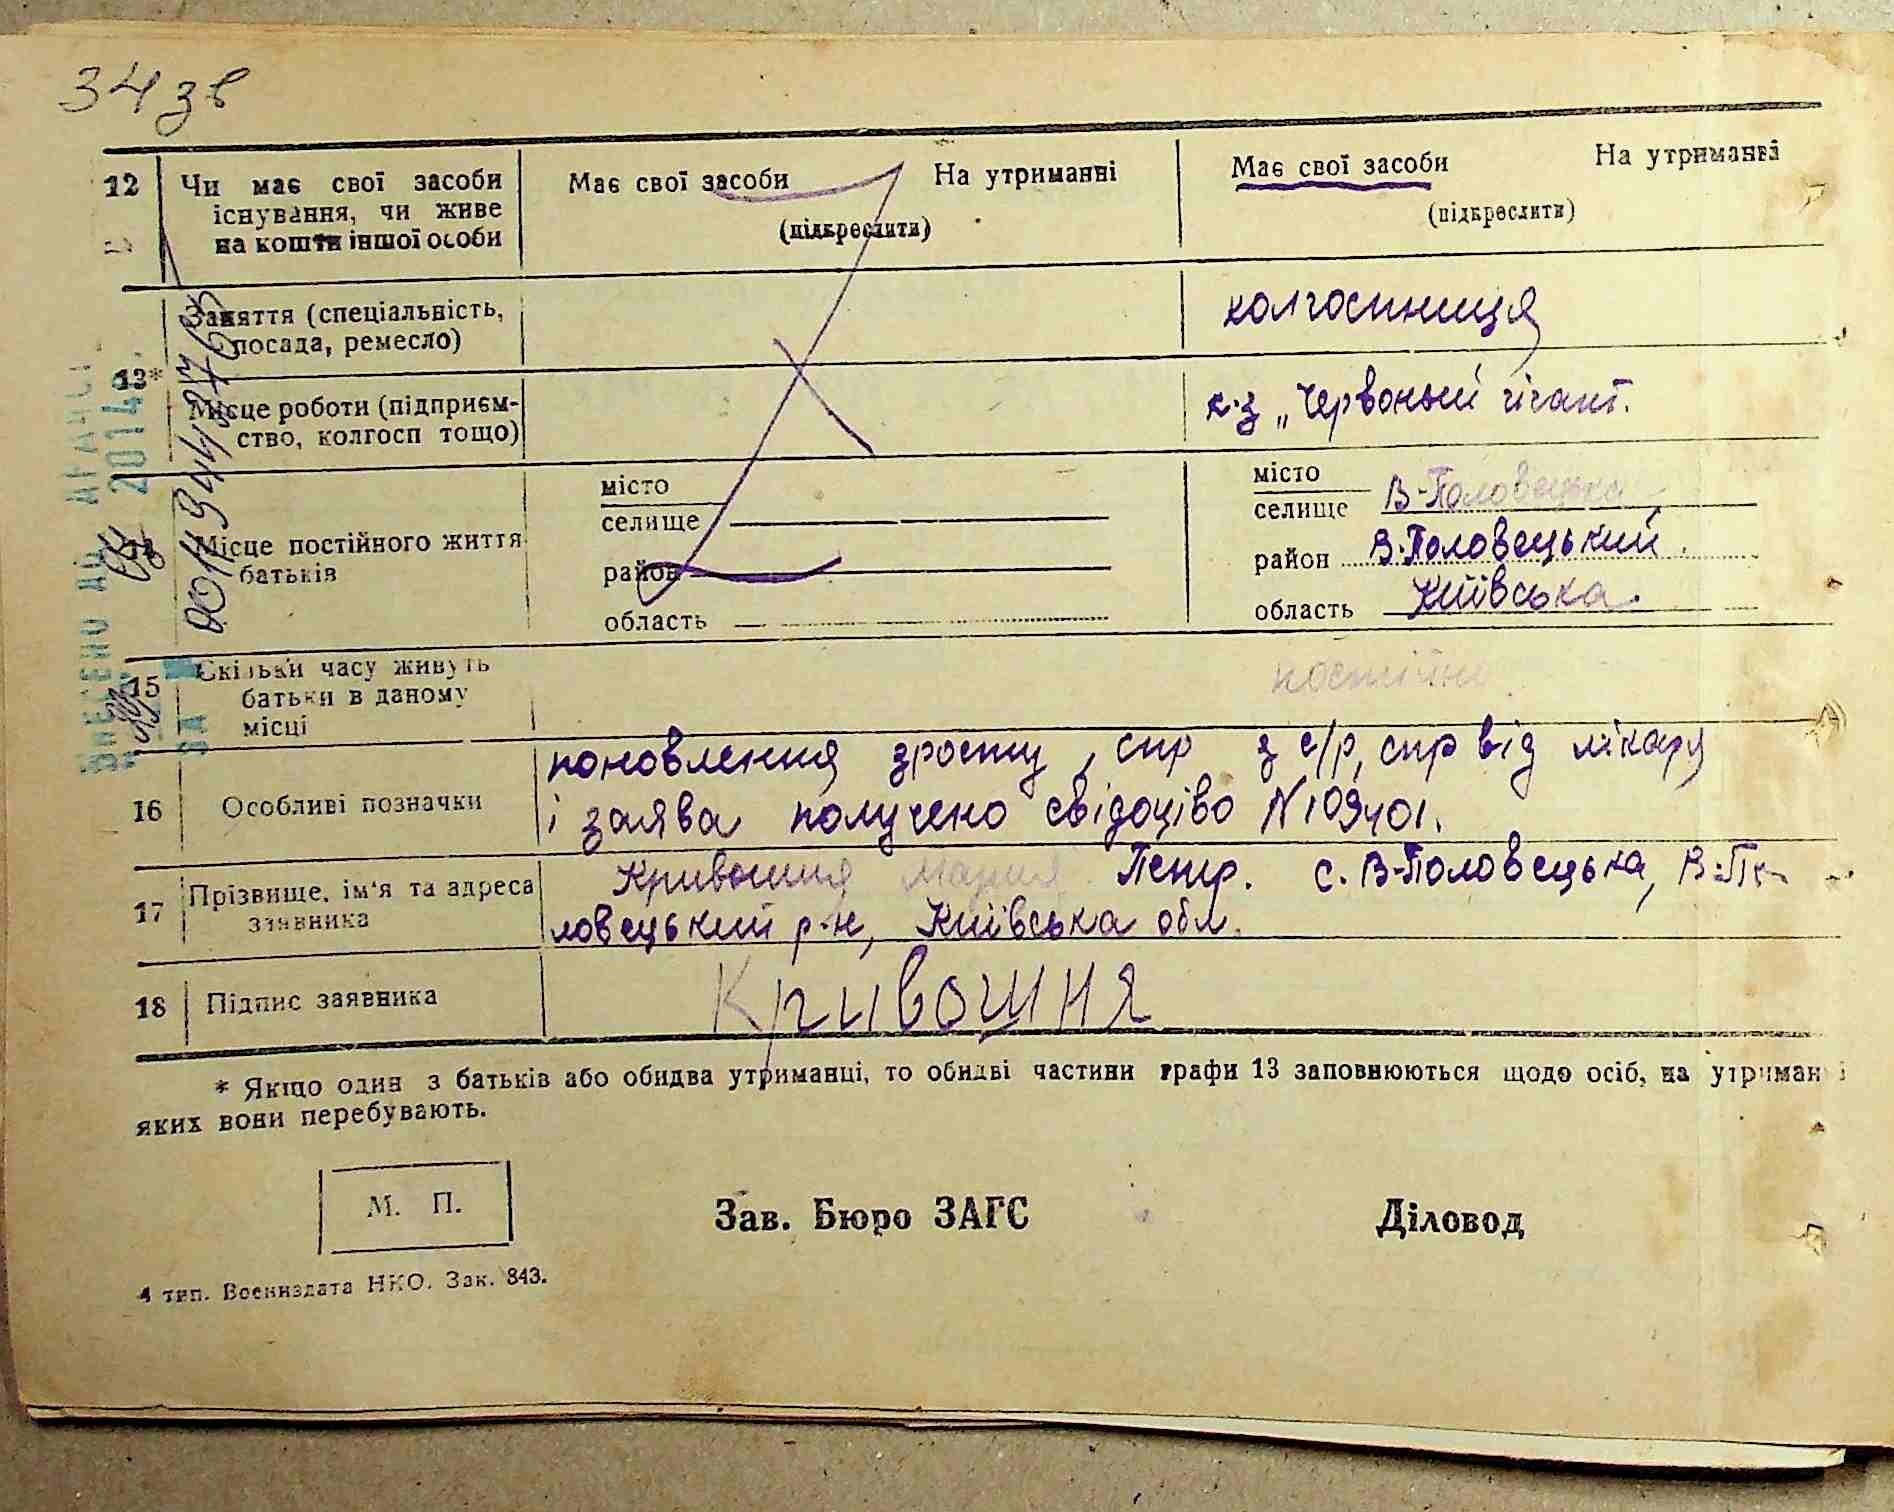 34 зв
12 Чи має свої засоби Має свої засоби На утриманні Має свої засоби На утриманні
існування, чи живе (підкреслити) (підкреслити)
на кошти іншої особи
Заняття (спеціальність, колгоспниця
посада, ремесло)
13*
Місце роботи (підприєм- к-з „Червоный гігант.
ство, колгосп тощо)
місто місто
селище селище В-Половецька
14 Місце постійного життя район район В-Половецький
батьків
область область Київська
Скільки часу живуть постійно
15 батьки в даному
місці
поновлення зросту, спр з с/р, спр від лікаря
16 Особливі позначки і заява получено свідоцтво N109401.
17 Прізвище, ім'я та адреса Кривошия Мария Петр. с. В-Половецька, В-По-
заявника ловецький р-н, Київська обл.
18 Підпис заявника Кривошия
* Якщо один з батьків або обидва утриманці, то обидві частини графи 13 заповнюються щодо осіб, на утриманні
яких вони перебувають.
М. П. Зав. Бюро ЗАГС Діловод
4 тип. Воениздата НКО. Зак. 843.
ВНЕСЕНО ДО
2014
ЗА